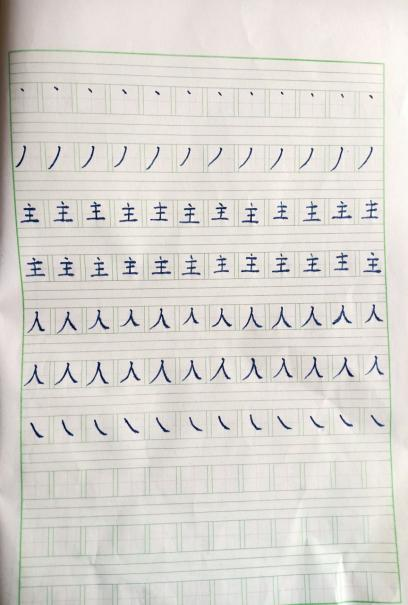 丶丶丶丶丶丶丶丶丶丶丶丶
丿丿丿丿丿丿丿丿丿丿丿丿
主主主主主主主主主主主主
主主主主主主主主主主主主
人人人人人人人人人人人人
人人人人人人人人人人人人
㇏㇏㇏㇏㇏㇏㇏㇏㇏㇏㇏㇏